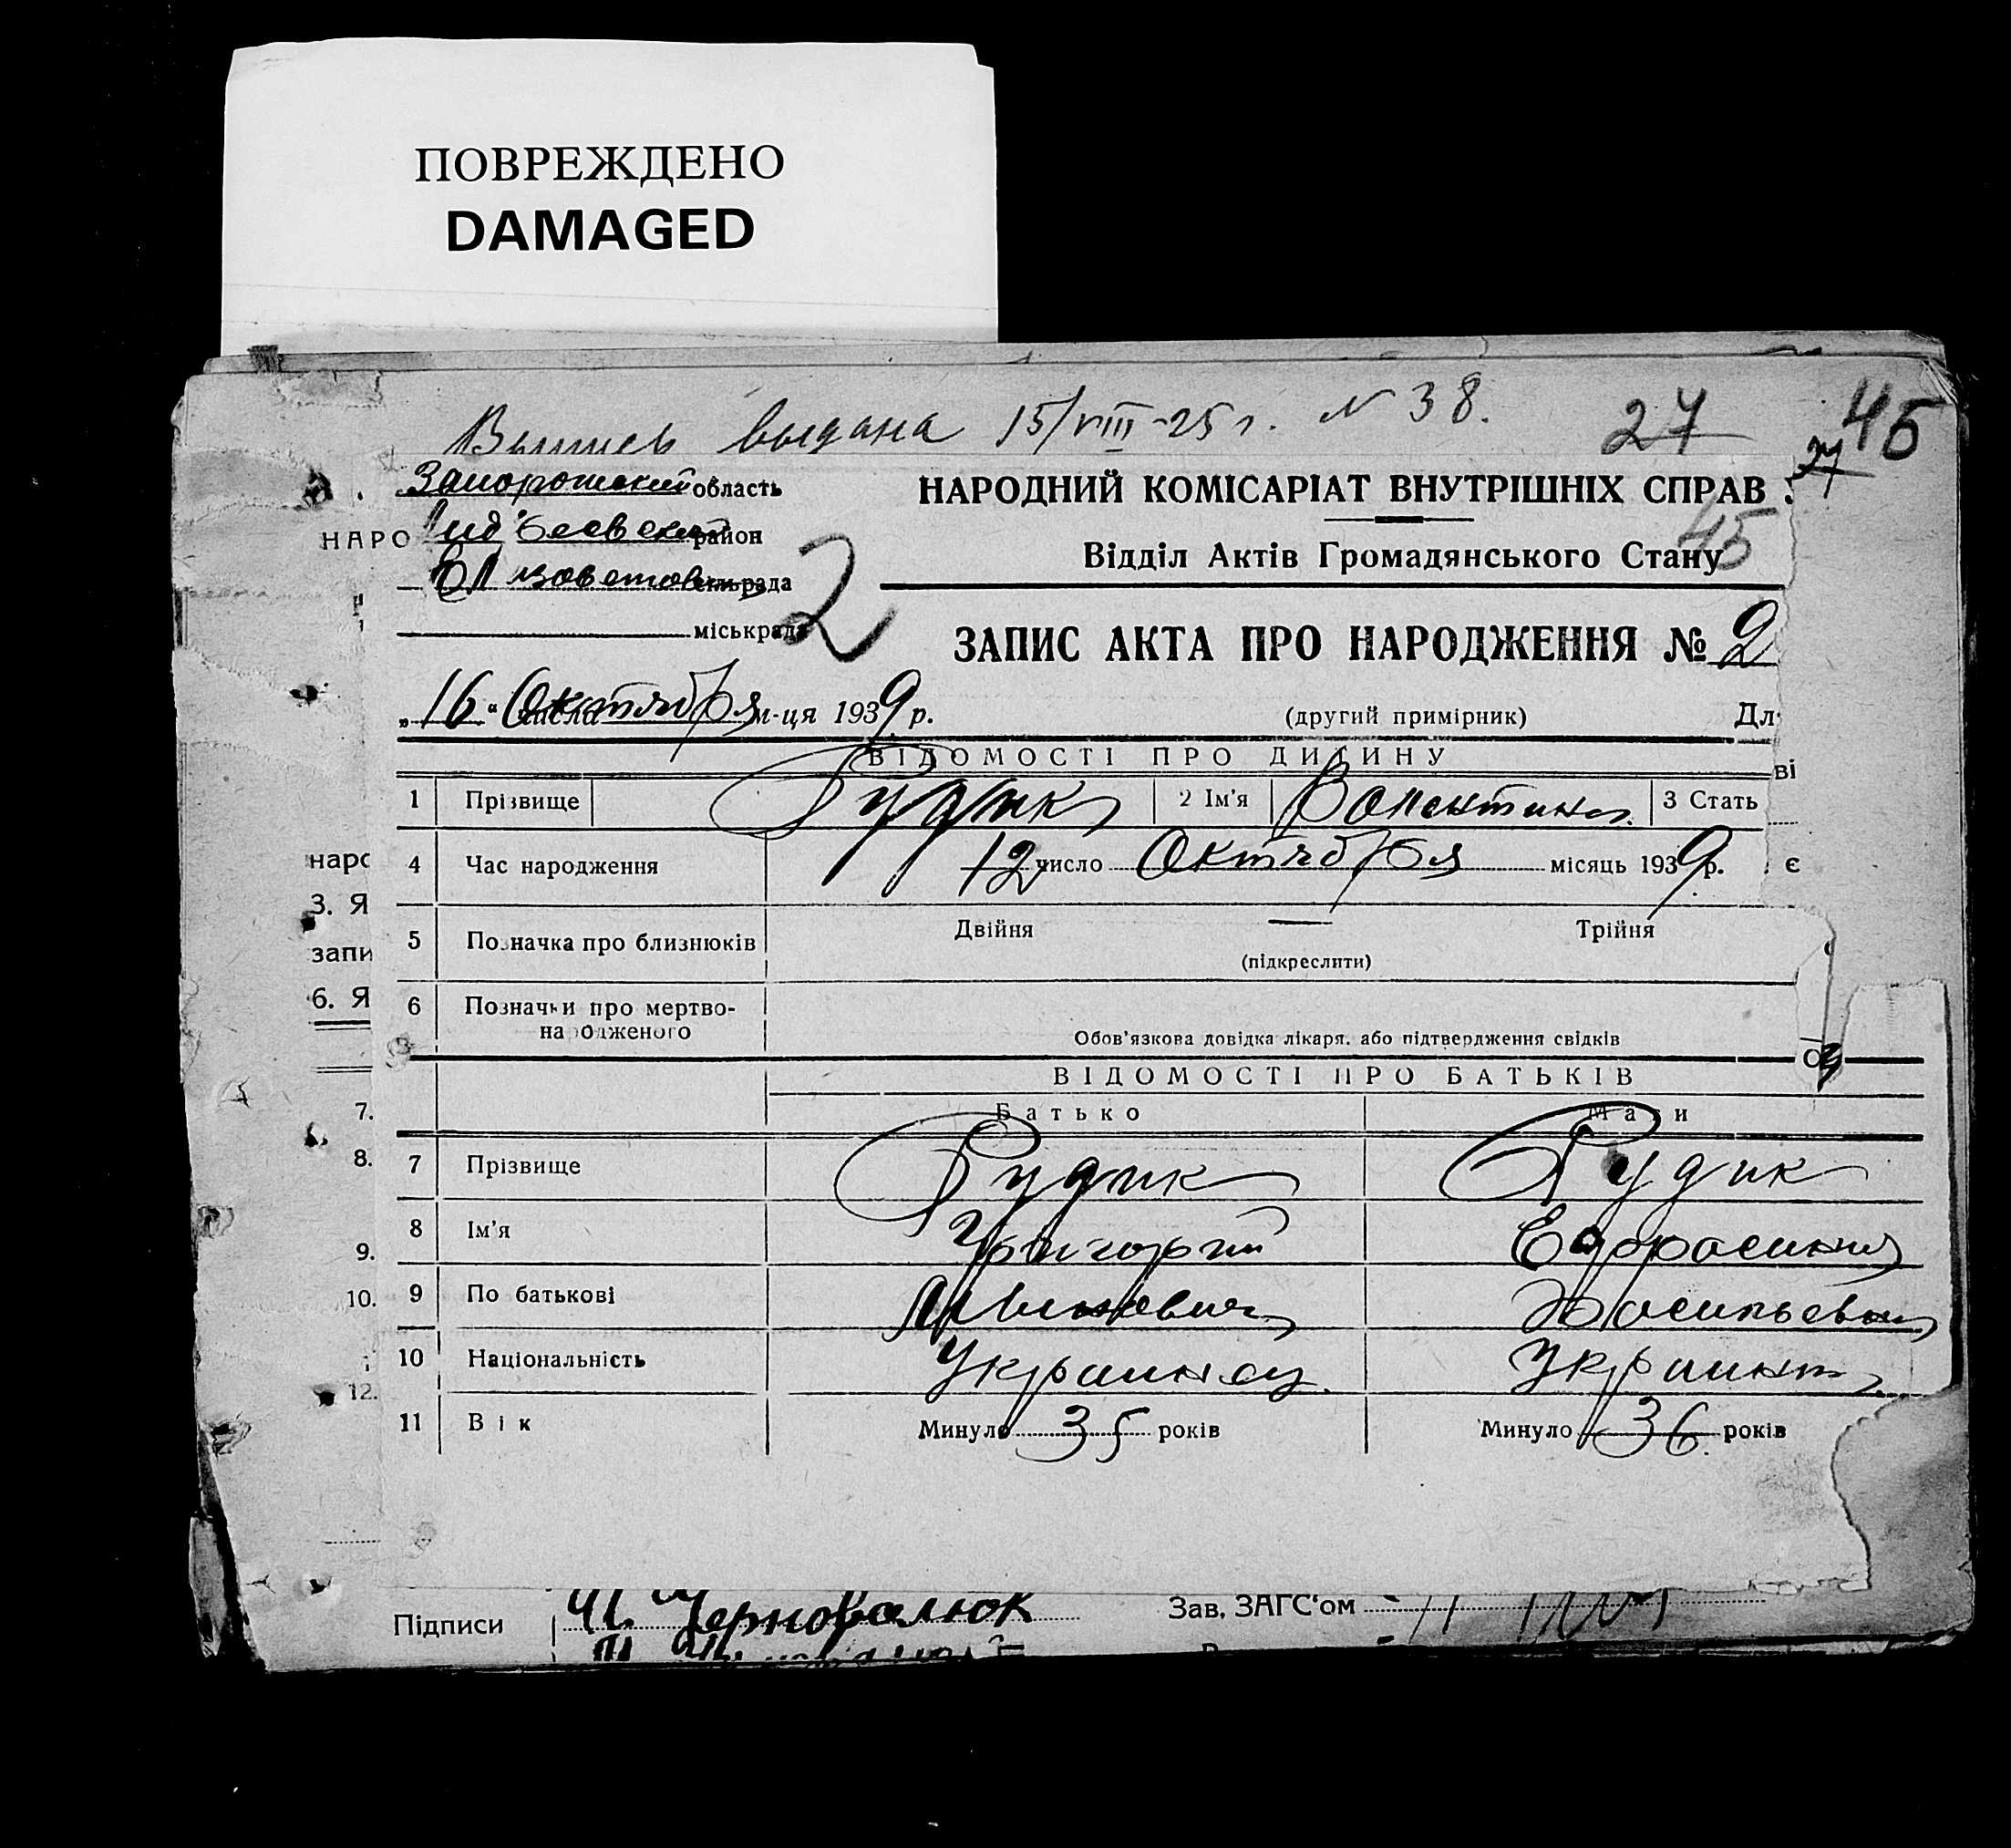 ПОВРЕЖДЕНО
DAMAGED
Выпись выдана 15/VIII-25 г. N 38. 27 45
27
Запорожский область
НАРОДНИЙ КОМІСАРІАТ ВНУТРІШНІХ СПРАВ
НАРО
район
45
Відділ Актів Громадянського Стану
сільрада
міськрада
2
ЗАПИС АКТА ПРО НАРОДЖЕННЯ № 2
„16“ числа Октября м-ця 1939 р.
(другий примірник) Дл
ВІДОМОСТІ ПРО ДИТИНУ
ві
1 Прізвище Рудик 2 Ім'я Валентина 3 Стать
наро 4 Час народження 12 число Октября місяць 1939 р. є
3. Я
5 Позначка про близнюків Двійня — Трійня
запи
(підкреслити)
6. Я
6 Позначки про мертво-
народженого
Обов'язкова довідка лікаря, або підтвердження свідків
ВІДОМОСТІ ПРО БАТЬКІВ
7.
Батько Мати
8. 7 Прізвище Рудик Рудик
9. 8 Ім'я Григорий Ефросиния
10. 9 По батькові Васильевна
10 Національність Украинец Украинк
12.
11 Вік Минуло 35 років Минуло 36 років
Підписи Черновалюк Зав. ЗАГС'ом